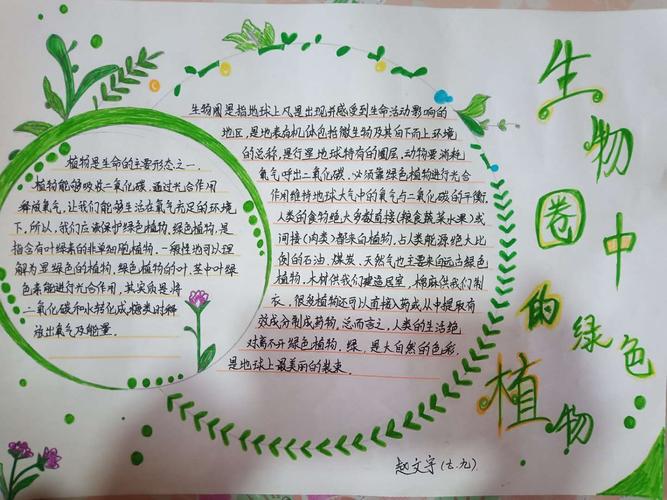 生物圈中的绿色植物
植物是生命的主要形态之一,
植物能够吸收二氧化碳,通过光合作用
释放氧气,让我们能够生活在氧气充足的环境
下,所以,我们应该保护绿色植物,绿色植物,是
指含有叶绿素的非单细胞植物,一般性地可以理
解为是绿色的植物,绿色植物的叶,茎中叶绿
色素能进行光合作用,其实质是将
二氧化碳和水转化成糖类对释
放出氧气及能量.
生物圈是指地球上凡是出现并感受到生命活动影响的
地区,是地表有机体包括微生物及其自下而上环境
的总称,是行星地球特有的圈层,动物要消耗
氧气呼出二氧化碳,必须靠绿色植物进行光合
作用维持地球大气中的氧气与二氧化碳的平衡.
人类的食物绝大多数直接(粮食蔬菜水果)或
间接(肉类)都来自植物,占人类能源绝大比
例的石油,煤炭,天然气也主要来自远古绿色
植物,木材供我们建造居室,棉麻供我们制
衣,很多植物还可以直接入药或从中提取有
效成分制成药物,总而言之,人类的生活绝
对离不开绿色植物,绿,是大自然的色彩,
是地球上最美丽的装束.
赵文宇(七.九)